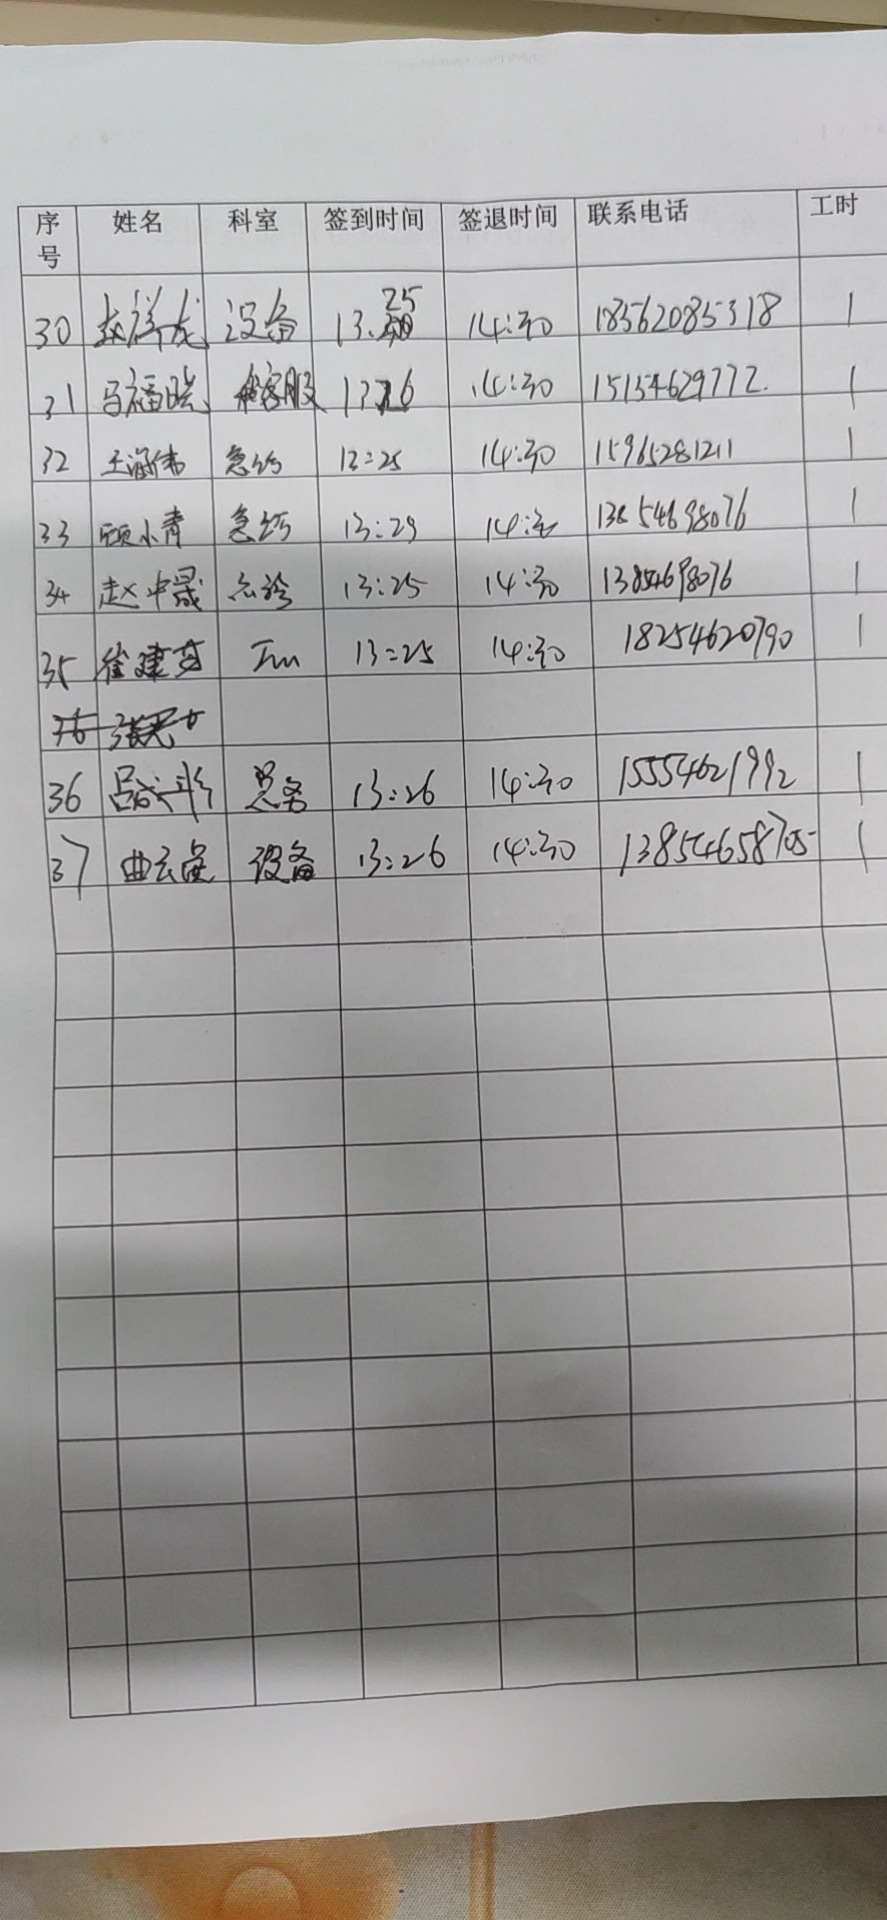 序号 姓名 科室 签到时间 签退时间 联系电话 工时
30 赵祥龙 设备 13.25 14:30 18562085318 1
31 马福晓 客服 1326 14:30 15154629772. 1
32 王海伟 急诊 13:25 14:30 15965281211 1
33 顾小青 急诊 13:29 14:30 13854698076 1
34 赵中晟 急诊 13:25 14:30 13854698076 1
35 崔建芬 13:25 14:30 18254620790 1
36
36 吕成彬 总务 13:26 14:30 15554621992 1
37 曲云 设备 13:26 14:30 13854658705 1